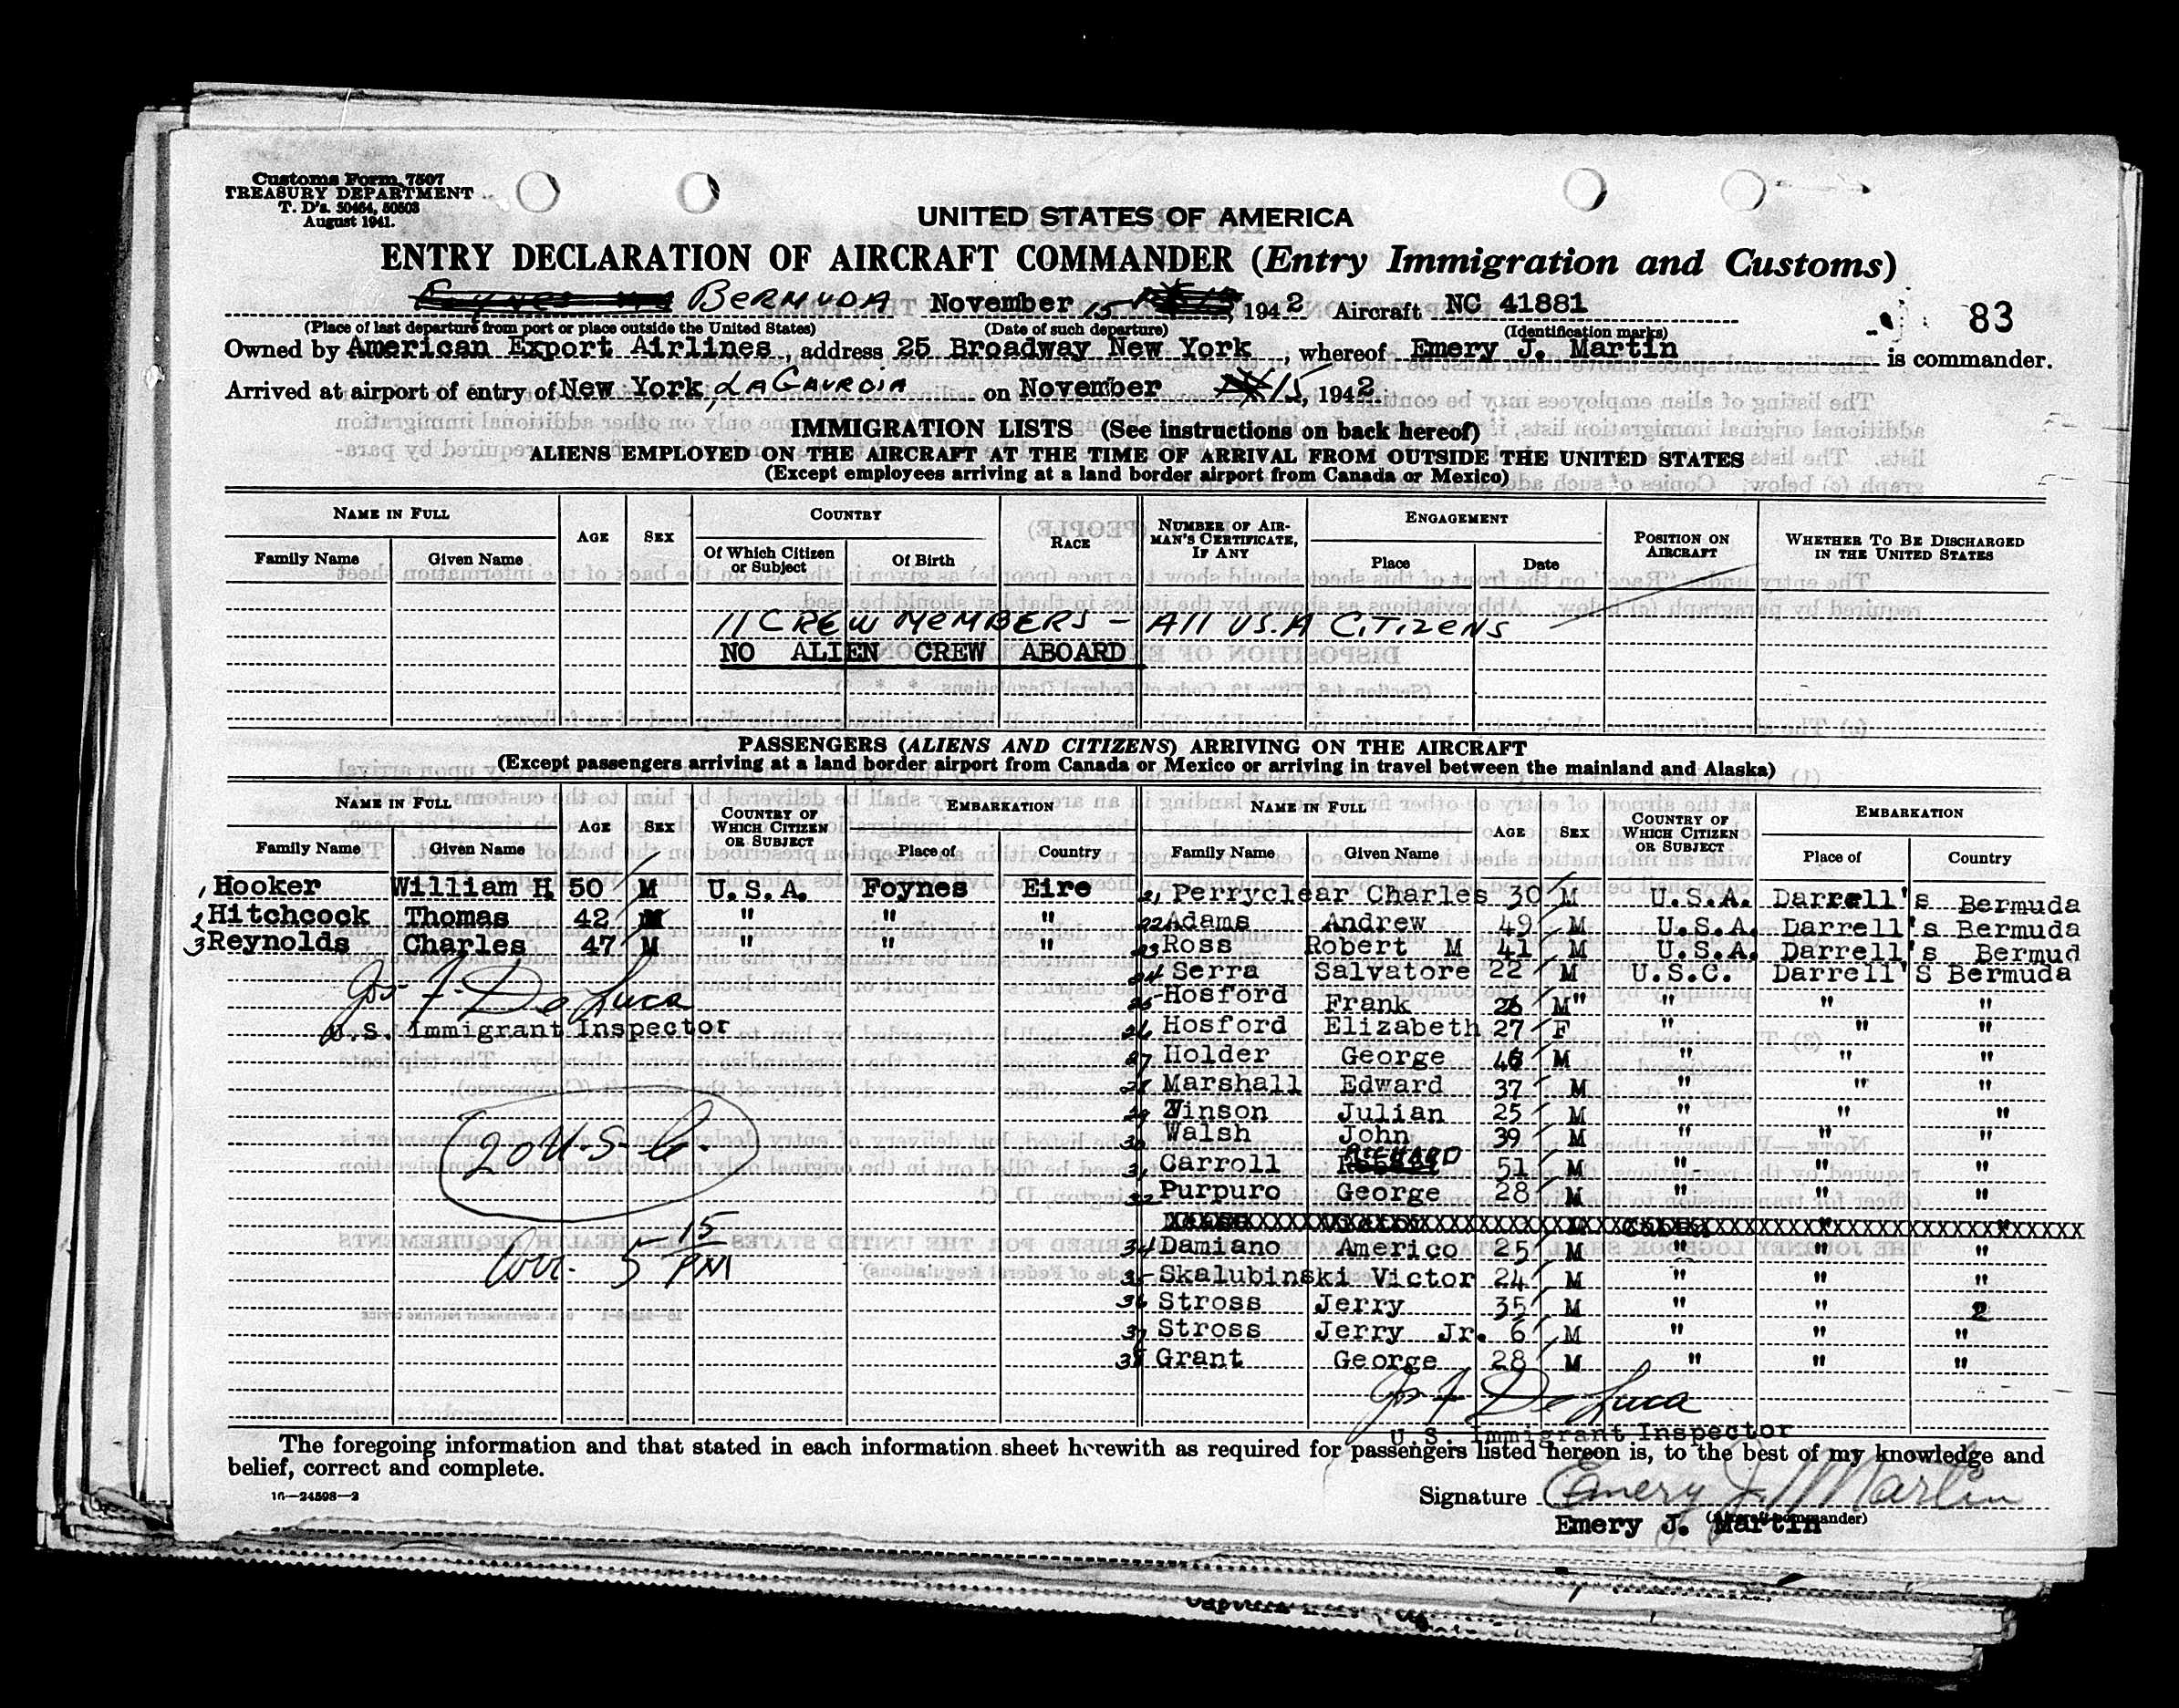 Customs Form 7507
TREASURY DEPARTMENT
T. D's. 50464, 50503
August 1941.
UNITED STATES OF AMERICA
ENTRY DECLARATION OF AIRCRAFT COMMANDER (Entry Immigration and Customs)
83
BERMUDA November 15, 1942 Aircraft NC 41881
(Place of last departure from port or place outside the United States) (Date of such departure) (Identification marks)
Owned by American Export Airlines, address 25 Broadway New York, whereof Emery J. Martin is commander.
Arrived at airport of entry of New York, LAGAURDIA on November 15, 1942.
IMMIGRATION LISTS (See instructions on back hereof)
ALIENS EMPLOYED ON THE AIRCRAFT AT THE TIME OF ARRIVAL FROM OUTSIDE THE UNITED STATES
(Except employees arriving at a land border airport from Canada or Mexico)
NAME IN FULL AGE SEX COUNTRY RACE NUMBER OF AIRMAN'S CERTIFICATE, IF ANY ENGAGEMENT POSITION ON AIRCRAFT WHETHER TO BE DISCHARGED IN THE UNITED STATES
Family Name Given Name Of Which Citizen or Subject Of Birth Place Date
11 CREW MEMBERS - All U.S.A CITIZENS
NO ALIEN CREW ABOARD
PASSENGERS (ALIENS AND CITIZENS) ARRIVING ON THE AIRCRAFT
(Except passengers arriving at a land border airport from Canada or Mexico or arriving in travel between the mainland and Alaska)
NAME IN FULL AGE SEX COUNTRY OF WHICH CITIZEN OR SUBJECT EMBARKATION NAME IN FULL AGE SEX COUNTRY OF WHICH CITIZEN OR SUBJECT EMBARKATION
Family Name Given Name Place of Country Family Name Given Name Place of Country
1 Hooker William H. 50 M U.S.A. Foynes Eire
2 Hitchcock Thomas 42 M " " "
3 Reynolds Charles 47 M " " "
Jos F. De Luca
U.S. Immigrant Inspector
20 U.S.C.
Arr. 5 15 PM
21 Perryclear Charles 30 M U.S.A. Darrell's Bermuda
22 Adams Andrew 49 M U.S.A. Darrell's Bermuda
23 Ross Robert M 41 M U.S.A. Darrell's Bermud
24 Serra Salvatore 22 M U.S.C. Darrell'S Bermuda
25 Hosford Frank 26 M" " " "
26 Hosford Elizabeth 27 F " " "
27 Holder George 46 M " " "
28 Marshall Edward 37 M " " "
29 Vinson Julian 25 M " " "
30 Walsh John 39 M " " "
31 Carroll RICHARD 51 M " " "
32 Purpuro George 28 M " " "
34 Damiano Americo 25 M " " "
35 Skalubinski Victor 24 M " " "
36 Stross Jerry 35 M " " 2
37 Stross Jerry Jr. 6 M " " "
38 Grant George 28 M " " "
Jos F De Luca
U.S. Immigrant Inspector
The foregoing information and that stated in each information sheet herewith as required for passengers listed hereon is, to the best of my knowledge and
belief, correct and complete.
16—24598-2
Signature Emery J. Martin
(Aircraft commander)
Emery J. Martin